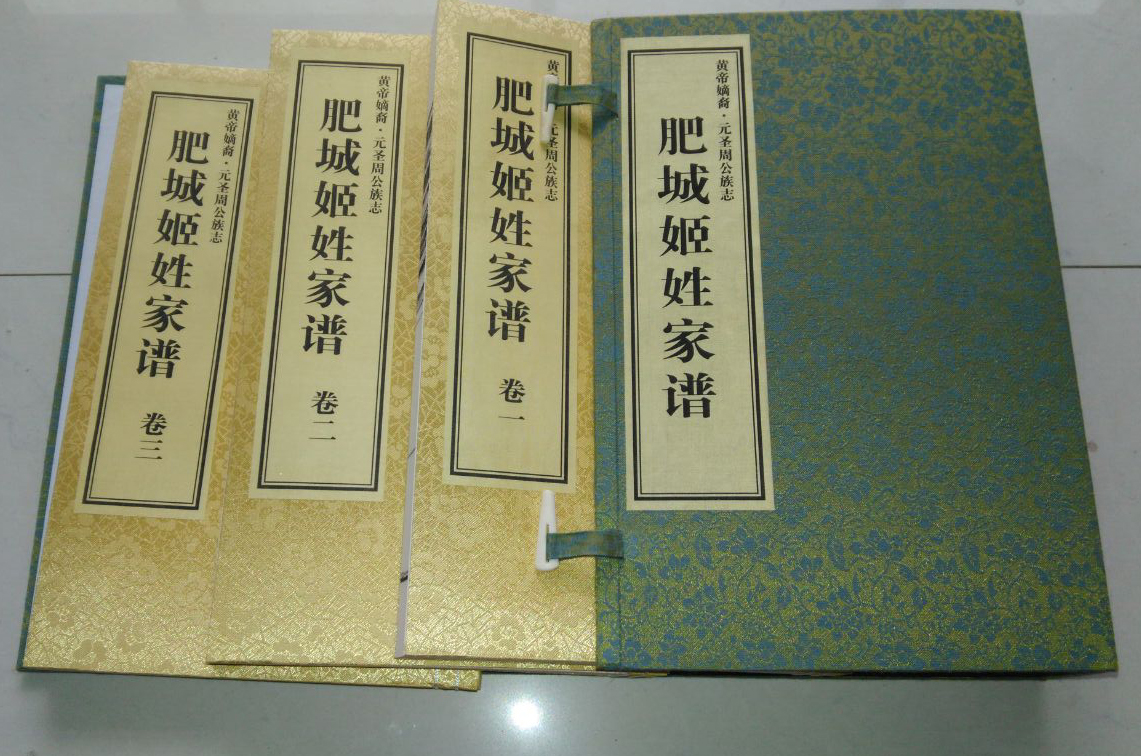 黄帝嫡裔·元圣周公族志
肥城姬姓家谱
黄 元圣周公族志
肥城姬姓家谱 卷一
黄帝嫡裔·元圣周公族志
肥城姬姓家谱 卷二
黄帝嫡裔·元圣周公族志
肥城姬姓家谱 卷三